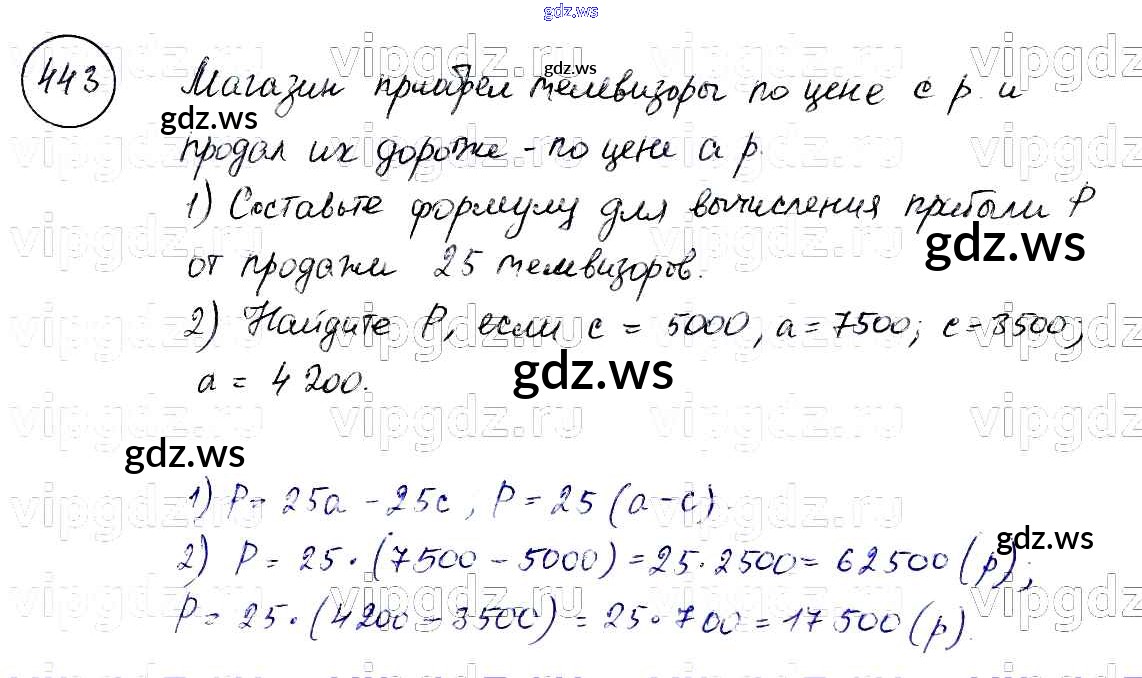 gdz.ws
443 Магазин приобрел телевизоры по цене с р. и
gdz.ws
gdz.ws
продал их дороже - по цене а р.
1) Составьте формулу для вычисления прибыли Р
gdz.ws
от продажи 25 телевизоров.
2) Найдите Р, если с = 5000, а = 7500; с = 3500,
gdz.ws
а = 4200.
gdz.ws
1) Р = 25а - 25с, Р = 25 (а - с).
gdz.ws
2) Р = 25 · (7500 - 5000) = 25 · 2500 = 62500 (р);
Р = 25 · (4200 - 3500) = 25 · 700 = 17500 (р).
vipgdz.ru vipgdz.ru vipgdz.ru vipgdz